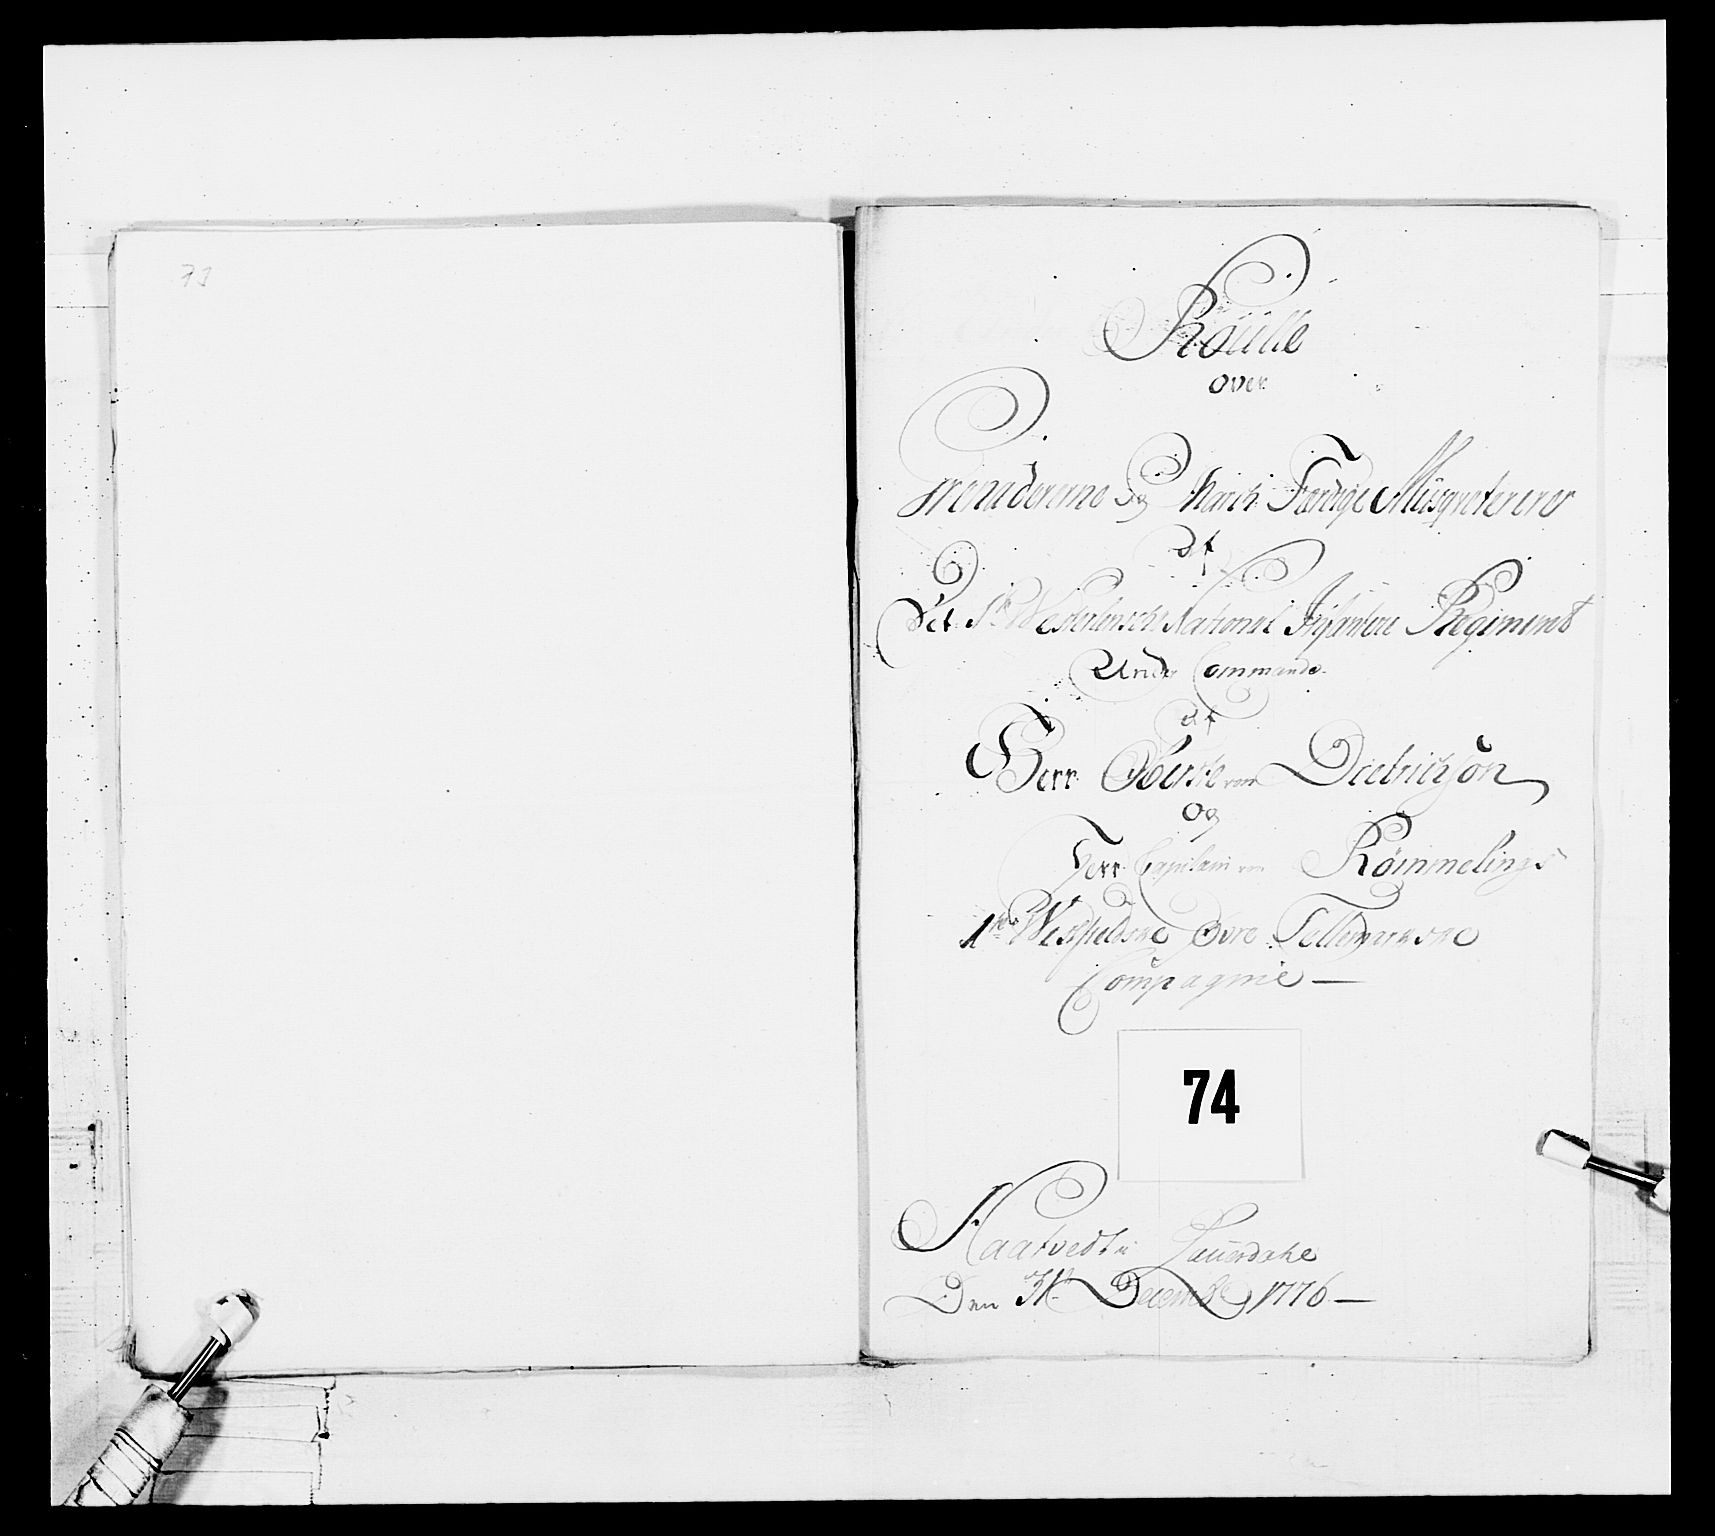 73
Roulle
over
Grenadererne og March Færdige Musqveterer
af
Det 1te Vesterlensche National Infanterie Regiment
Under Commando
af
Herr Oberste von Dietrichson
Og
Herr Capitain von Römmelings
1te Westfieldske Øvre Tellemarkske
Compagnie —
74
Haatvedt i Laurdahl
Den 31te Decembr 1776 —